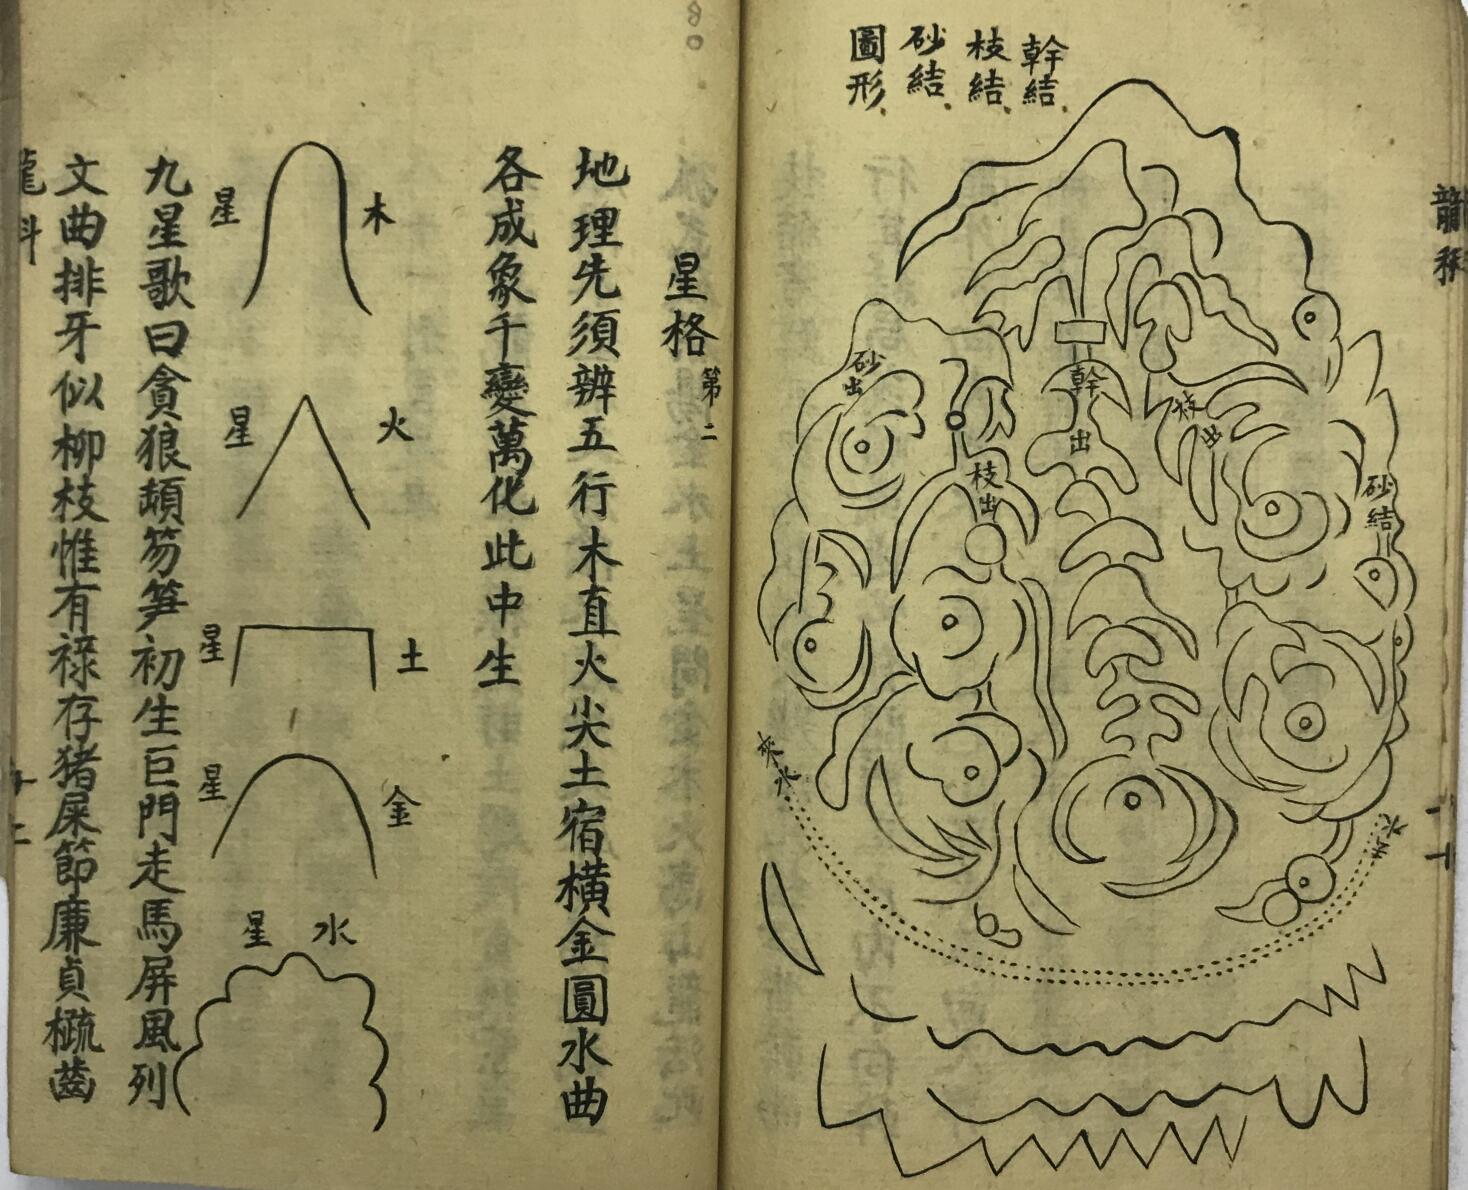 幹結
枝結
砂結
圖形
砂出
幹出
枝出
砂結
夾水
星格 第二
地理先須辨五行木直火尖土宿橫金圓水曲
各成象千變萬化此中生
木星
火星
土星
金星
水星
九星歌曰貪狼頓笏笋初生巨門走馬屏風列
文曲排牙似柳枝惟有祿存猪屎節廉貞梳齒